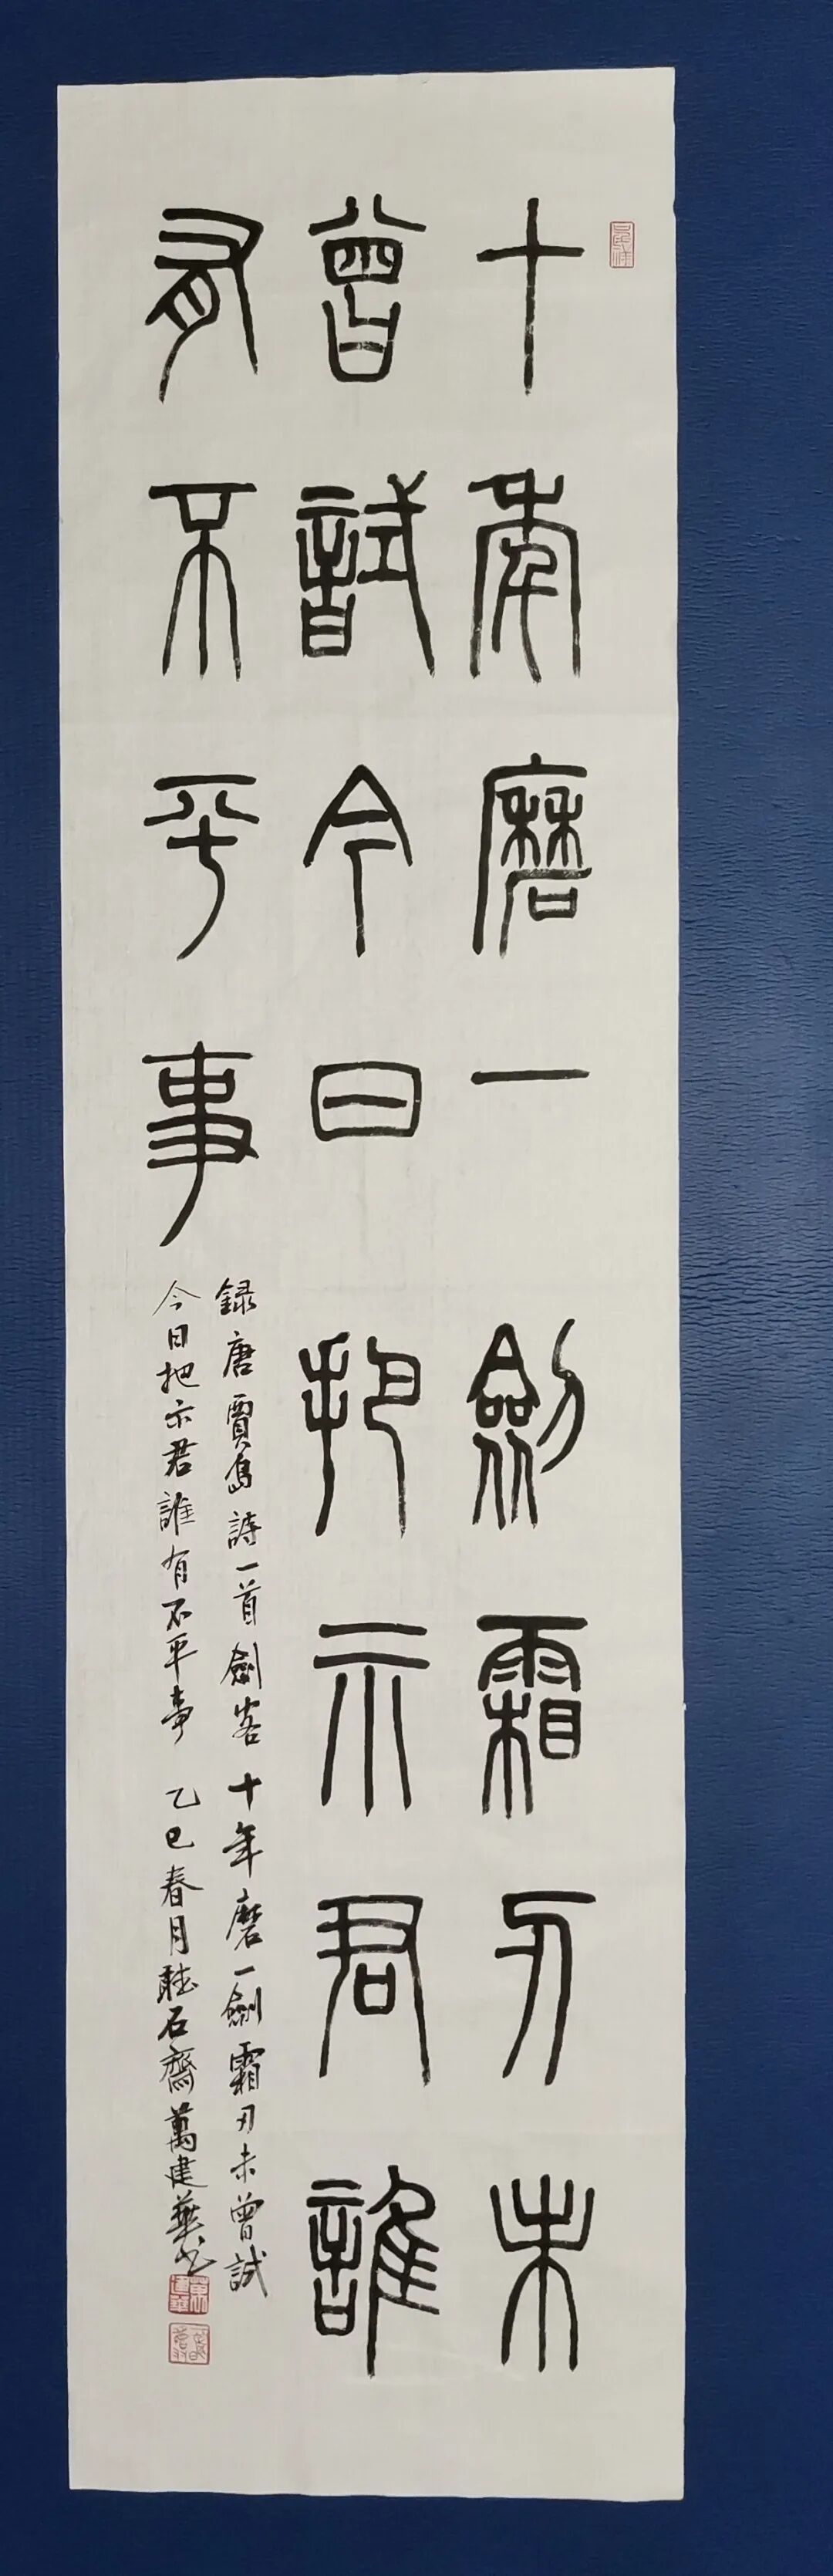 十年磨一劍霜刃未
曾試今日把示君誰
有不平事
録唐賈島詩一首劍客十年磨一劍霜刃未曾試
今日把示君誰有不平事乙巳春月聴石齋萬建華書